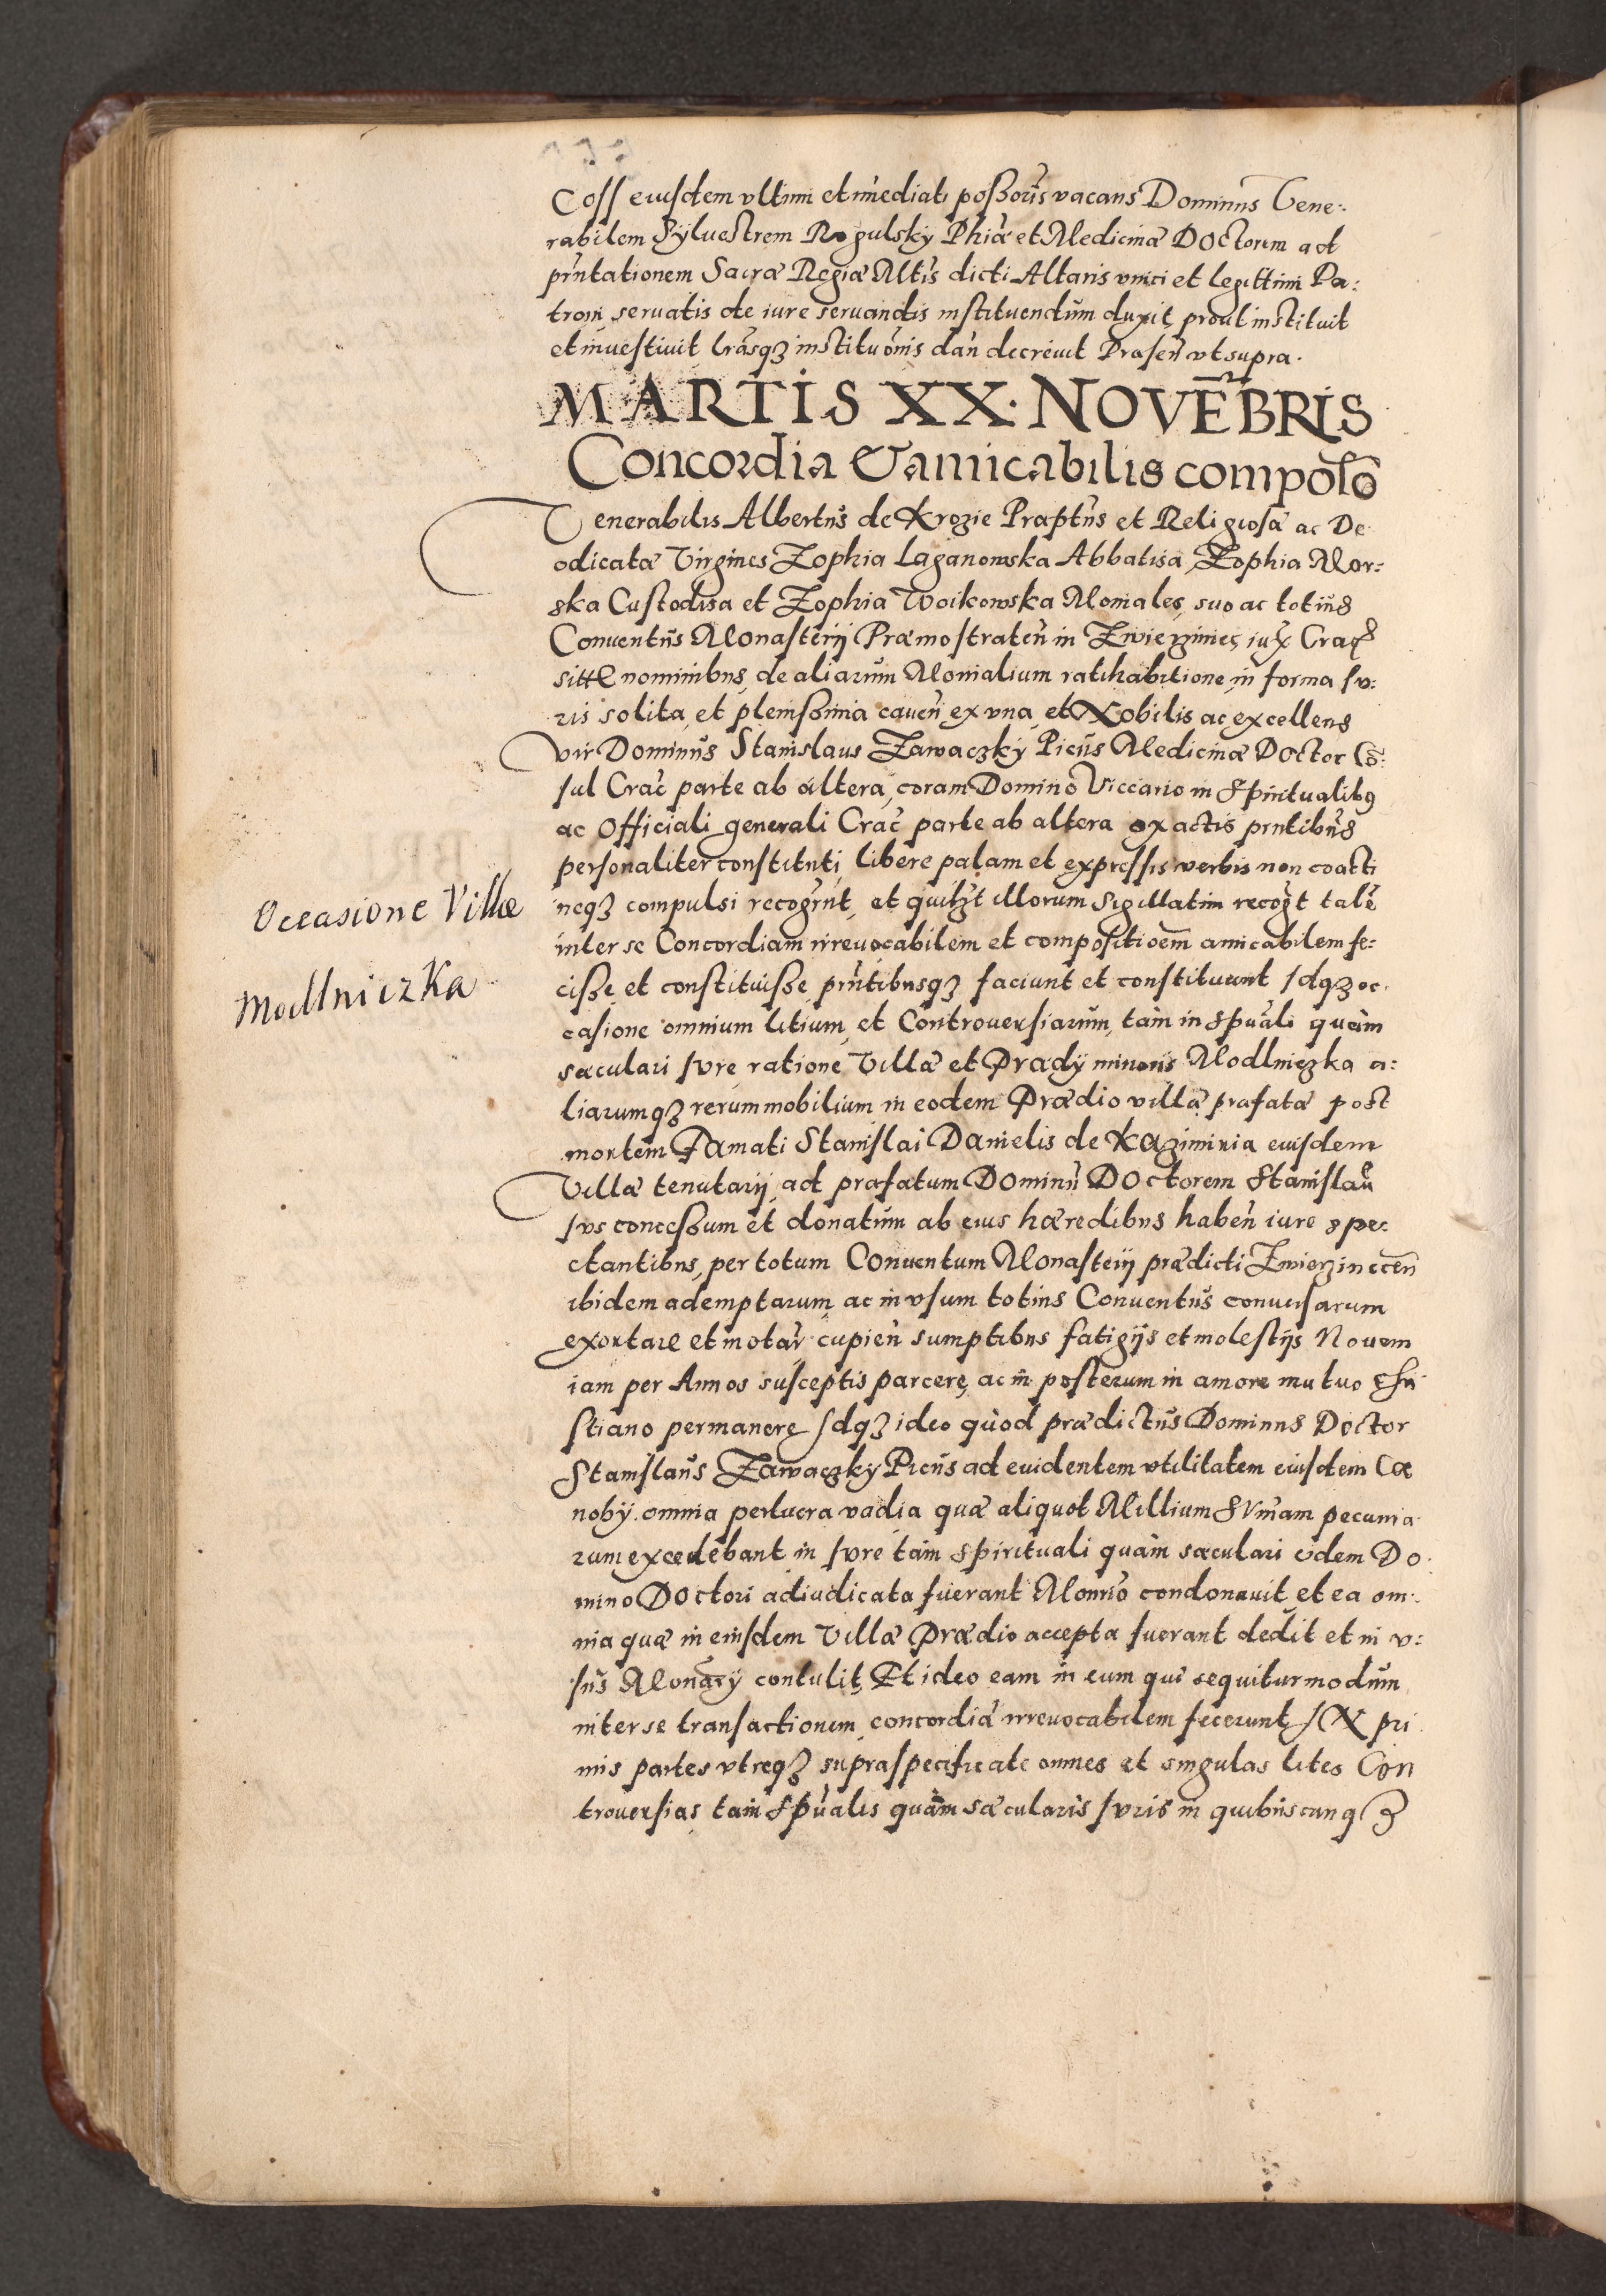 Coss eiusdem vltimi et īmediati poßoris vacans Dominus Vene:
rabilem Sylvestrem Rogulsky Phiæ et Medicinæ Doctorem ad
pñtationem Sacræ Regiæ Mtis dicti Altaris vnici et legittimi Pa:
troni, servatis de iure servandis instituendum duxit, prout instituit
et investivit lrasq3 institutionis dañ decrevit Præseñ vt supra.
MARTIS XX. NOVĒBRIS
Concordia & amicabilis compotō
Venerabilis Albertus de Krozie Præptus et Religiosæ ac De
odicatæ Virgines Zophia Laganowska Abbatisa, Zophia Mor:
ska Custodisa et Zophia Woikowska Moniales, suo ac totius
Conventus Monasterij Præmostrateñ in Zwierzinies, iux Crac
sitte nominibus, de aliarum Monialium ratihabitione, in forma Iu:
ris solita, et plenissima caveñ, ex vna, et Nobilis ac excellens
vir Dominus Stanislaus Zawaczky Picus Medicinæ Doctor Cō:
sul Crac parte ab altera, coram Domino Viccario in Spiritualibus
ac Officiali generali Crac parte ab altera ex actis pntibus
personaliter constituti, libere palam et expressis verbis non coacti
neq3 compulsi recogrnt, et quilzt illorum Sigillatim recogt talē
inter se Concordiam irrevocabilem et compositioēm amicabilem fe:
ciße et constituiße, pñtibusq3 faciunt et constituunt Idq3 oc.
casione omnium litium, et Controversiarum, tam in Spuali quam
sæculari Iure ratione Villæ et Prædij minoris Modlniczka a:
liarumq3 rerum mobilium in eodem Prædio villæ præfatæ post
mortem Famati Stanislai Danielis de Kazimiria eiusdem
Villæ tenutarij, ad præfatum Dominū Doctorem Stanislaū
Ius conceßum et donatum ab eius hæredibus habeñ iure spe:
ctantibus, per totum Conventum Monasterij prædicti Zwierzinecēn
ibidem ademptarum, ac in vsum totius Conventus conversarum
exortare et motar cupieñ sumptibus fatigijs et molestijs Novem
iam per Annos susceptis parcere, ac in posterum in amore mutuo Chri
stiano permanere, Idq3 ideo quod prædictus Dominus Doctor
Stanislaus Zawaczky Picus ad evidentem vtilitatem eiusdem Cæ
nobij omnia perlucra vadia quæ aliquot Millium Sūmam pecunia
rum excedebant in Iure tam Spirituali quam sæculari eidem Do.
mino Doctori adiudicata fuerant Monrio condonavit, et ea om:
nia quæ in eiusdem Villæ Prædio accepta fuerant dedit et in v:
sus Monarij contulit, Et ideo eam in eum qui sequitur modum
inter se transactionem, concordiā irrevocabilem fecerunt, IN pri
mis partes vtreq3 supraspecificate omnes et singulas lites Con
troversias, tam Spualis quam sæcularis Iuris in quibuscunq3
Occasione Villæ
Modlniczka